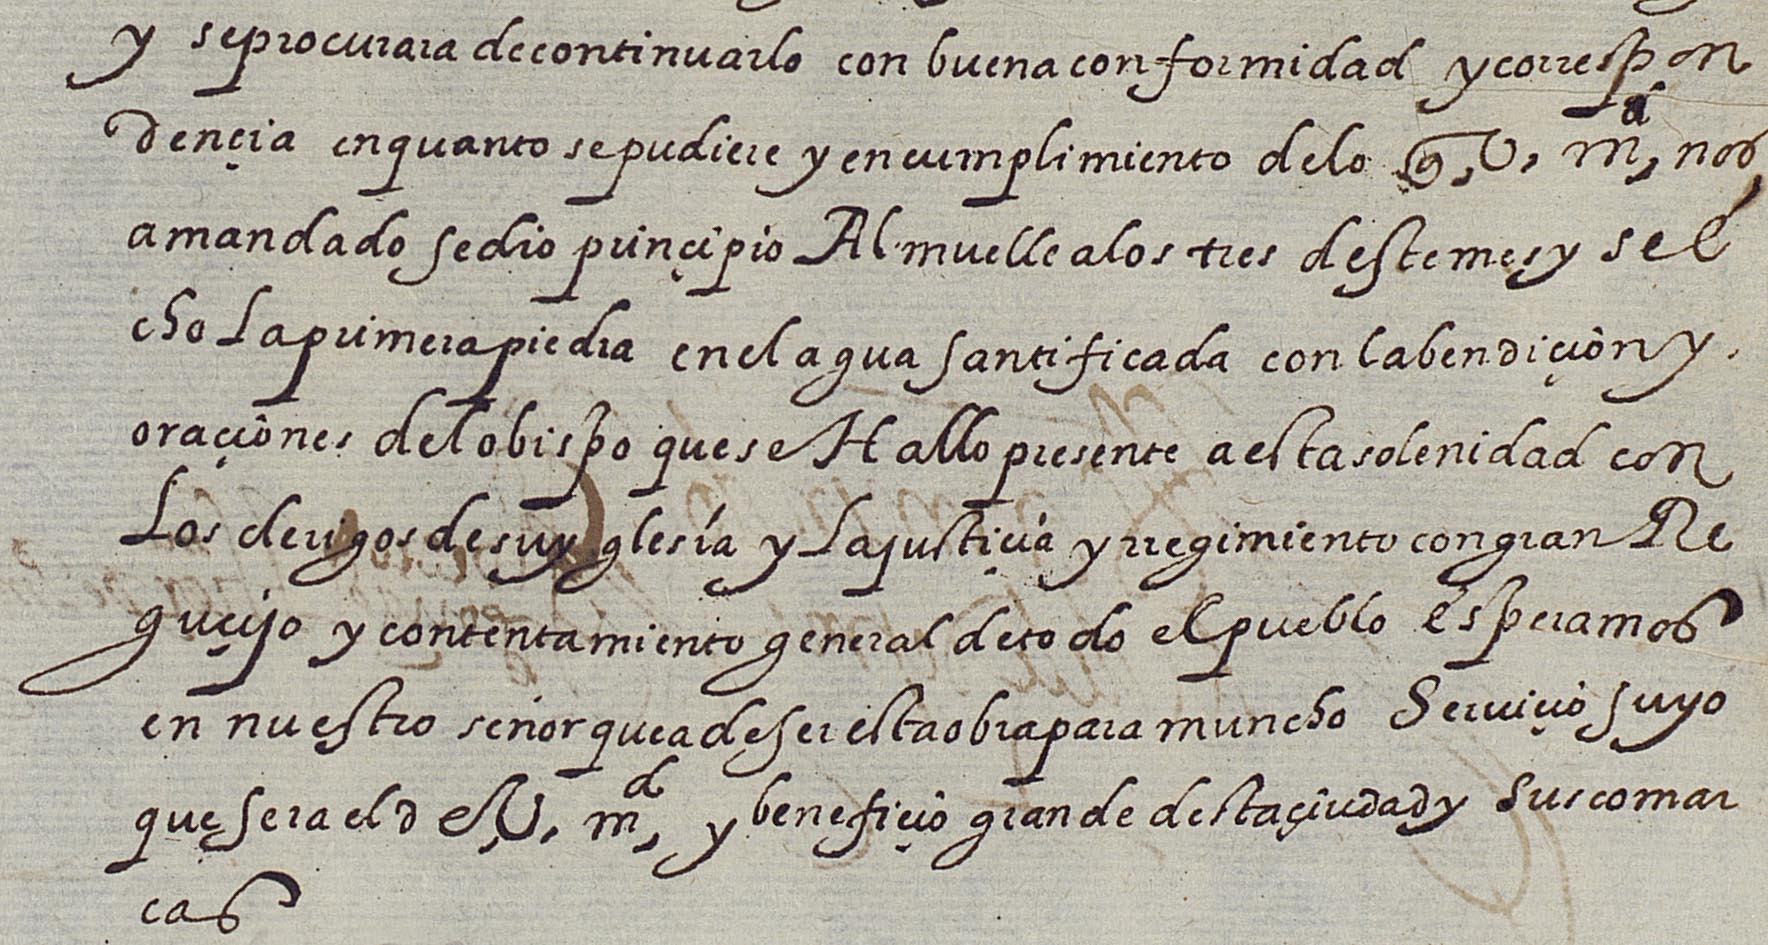 y se procurara de continuarlo con buena conformidad y correspon
dençia en quanto se pudiere y en cumplimiento de lo q̃, V. m.d, nos
a mandado se dio prinçipio Al muelle a los tres deste mes y se e
cho La primera piedra en el agua santificada con la bendiçion y
oraçiones del obispo que se Hallo presente a esta solenidad con
Los clerigos de su yglesia y La justiçia y rregimiento con gran Re
guçijo y contentamiento general de todo el pueblo esperamos
en nuestro señor que a de ser esta obra para muncho Serviçio suyo
que sera el de V. m.d, y benefiçio grande desta çiudad y sus comar
cas